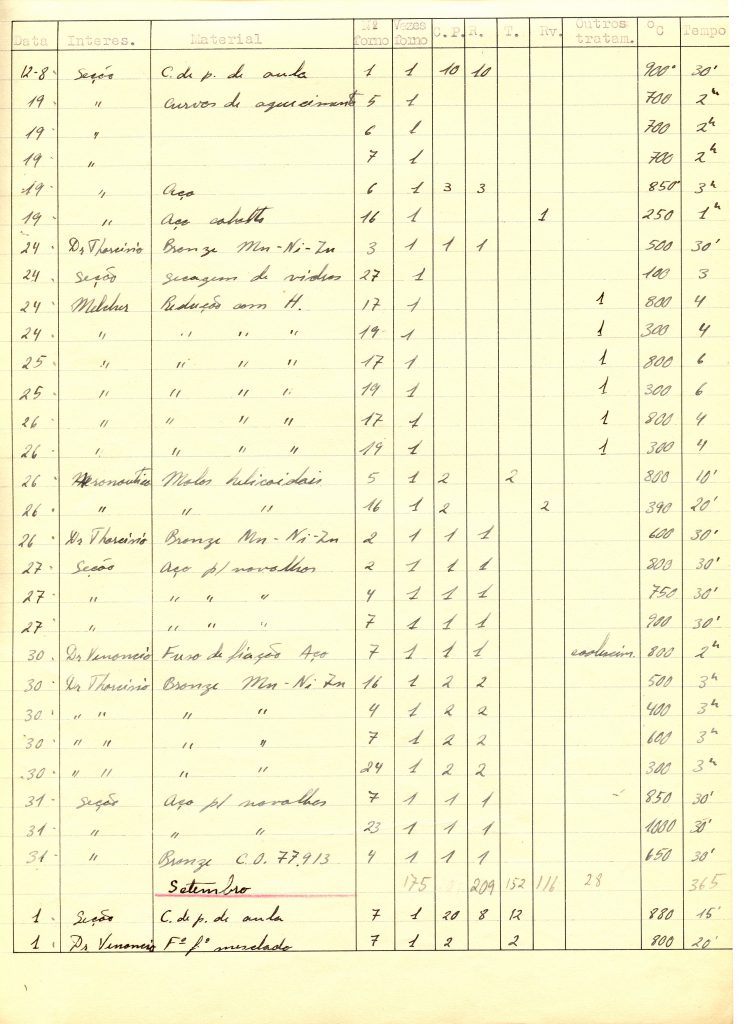 Data Interes. Material Nº forno Vezes forno C.P. R. T. Rv. Outros tratam. ºC Tempo
12-8 Seção C. de p. de aula 1 1 10 10 900° 30'
19 " Curvas de aquecimento 5 1 700 2h
19 " 6 1 700 2h
19 " 7 1 700 2h
19 " Aço 6 1 3 3 850° 3h
19 " Aço cobalto 16 1 1 250 1h
24 Dr Tharcisio Bronze Mn-Ni-Zn 3 1 1 1 500 30'
24 Seção Secagem de vidros 27 1 100 3
24 Melcher Redução com H. 17 1 1 800 4
24 " " " " 19 1 1 300 4
25 " " " " 17 1 1 800 6
25 " " " " 19 1 1 300 6
26 " " " " 17 1 1 800 4
26 " " " " 19 1 1 300 4
26 Aeronautica Molas helicoidais 5 1 2 2 800 10'
26 " " " 16 1 2 2 390 20'
26 Dr Tharcisio Bronze Mn-Ni-Zn 2 1 1 1 600 30'
27 Seção Aço p/ navalhas 2 1 1 1 800 30'
27 " " " " 4 1 1 1 750 30'
27 " " " " 7 1 1 1 900 30'
30 Dr Venancio Fuso de fiação Aço 7 1 1 1 800 2h
30 Dr Tharcisio Bronze Mn-Ni Zn 16 1 2 2 500 3h
30 " " " " 4 1 2 2 400 3h
30 " " " " 7 1 2 2 600 3h
30 " " " " 24 1 2 2 300 3h
31 Seção Aço p/ navalhas 7 1 1 1 850 30'
31 " " " 23 1 1 1 1000 30'
31 " Bronze C.O. 77.913 4 1 1 1 650 30'
Setembro 175 209 152 116 28 365
1 Seção C. de p. de aula 7 1 20 8 12 880 15'
1 Dr Venancio Fº fº mesclado 7 1 2 2 800 20'